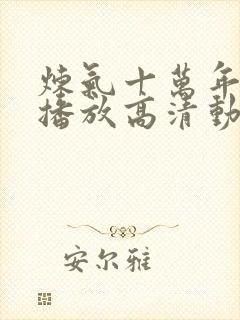 煉氣十萬年
播放高清動
安尔雅